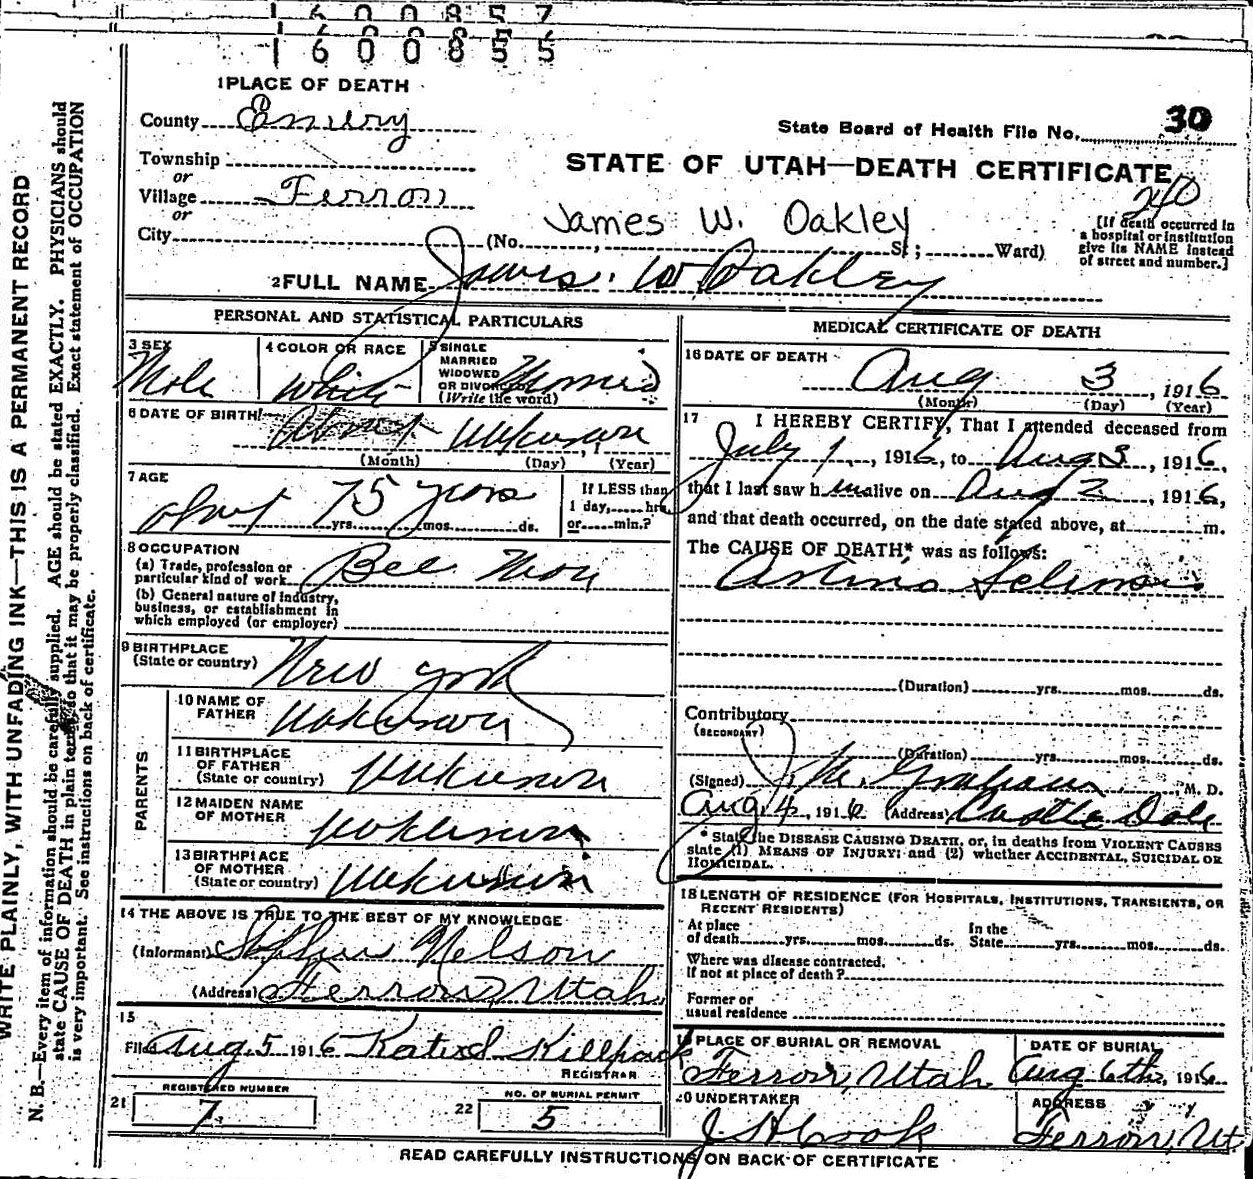 1600857
1600856
1 PLACE OF DEATH
County Emery
State Board of Health File No. 30
Township
or
STATE OF UTAH—DEATH CERTIFICATE
240
Village Ferron
or
James W. Oakley
City (No. , St.; Ward)
[If death occurred in
a hospital or institution
give its NAME instead
of street and number.]
2 FULL NAME James. W Oakley
PERSONAL AND STATISTICAL PARTICULARS
3 SEX
Male
4 COLOR OR RACE
White
5 SINGLE
MARRIED
WIDOWED
OR DIVORCED
(Write the word)
Married
6 DATE OF BIRTH
About Unknown , 1
(Month) (Day) (Year)
7 AGE
about 75 years
yrs. mos. ds.
If LESS than
1 day, hrs.
or min.?
8 OCCUPATION
(a) Trade, profession or
particular kind of work Bee Man
(b) General nature of industry,
business, or establishment in
which employed (or employer)
9 BIRTHPLACE
(State or country) New York
PARENTS
10 NAME OF
FATHER Unknown
11 BIRTHPLACE
OF FATHER
(State or country) Unknown
12 MAIDEN NAME
OF MOTHER Unknown
13 BIRTHPLACE
OF MOTHER
(State or country) Unknown
14 THE ABOVE IS TRUE TO THE BEST OF MY KNOWLEDGE
(Informant) Nelson
(Address) Ferron, Utah
15
Filed Aug 5 1916 Killpack
REGISTRAR
21
REGISTERED NUMBER
7
22
NO. OF BURIAL PERMIT
5
MEDICAL CERTIFICATE OF DEATH
16 DATE OF DEATH
Aug 3 , 1916
(Month) (Day) (Year)
17 I HEREBY CERTIFY, That I attended deceased from
July 1 , 1916, to Aug 3 , 1916,
that I last saw him alive on Aug 2 , 1916,
and that death occurred, on the date stated above, at m.
The CAUSE OF DEATH* was as follows:
(Duration) yrs. mos. ds.
Contributory
(SECONDARY)
(Duration) yrs. mos. ds.
(Signed) Graham , M. D.
Aug. 4 , 1916 (Address) Castle Dale
* State the DISEASE CAUSING DEATH, or, in deaths from VIOLENT CAUSES
state (1) MEANS OF INJURY; and (2) whether ACCIDENTAL, SUICIDAL OR
HOMICIDAL.
18 LENGTH OF RESIDENCE (FOR HOSPITALS, INSTITUTIONS, TRANSIENTS, OR
RECENT RESIDENTS)
At place
of death yrs. mos. ds.
In the
State yrs. mos. ds.
Where was disease contracted,
if not at place of death?
Former or
usual residence
19 PLACE OF BURIAL OR REMOVAL
Ferron, Utah
DATE OF BURIAL
Aug 6th, 1916
20 UNDERTAKER
J H Cook
ADDRESS
Ferron, Ut
READ CAREFULLY INSTRUCTIONS ON BACK OF CERTIFICATE
WRITE PLAINLY, WITH UNFADING INK—THIS IS A PERMANENT RECORD
N. B.—Every item of information should be carefully supplied. AGE should be stated EXACTLY. PHYSICIANS should
state CAUSE OF DEATH in plain terms, so that it may be properly classified. Exact statement of OCCUPATION
is very important. See instructions on back of certificate.